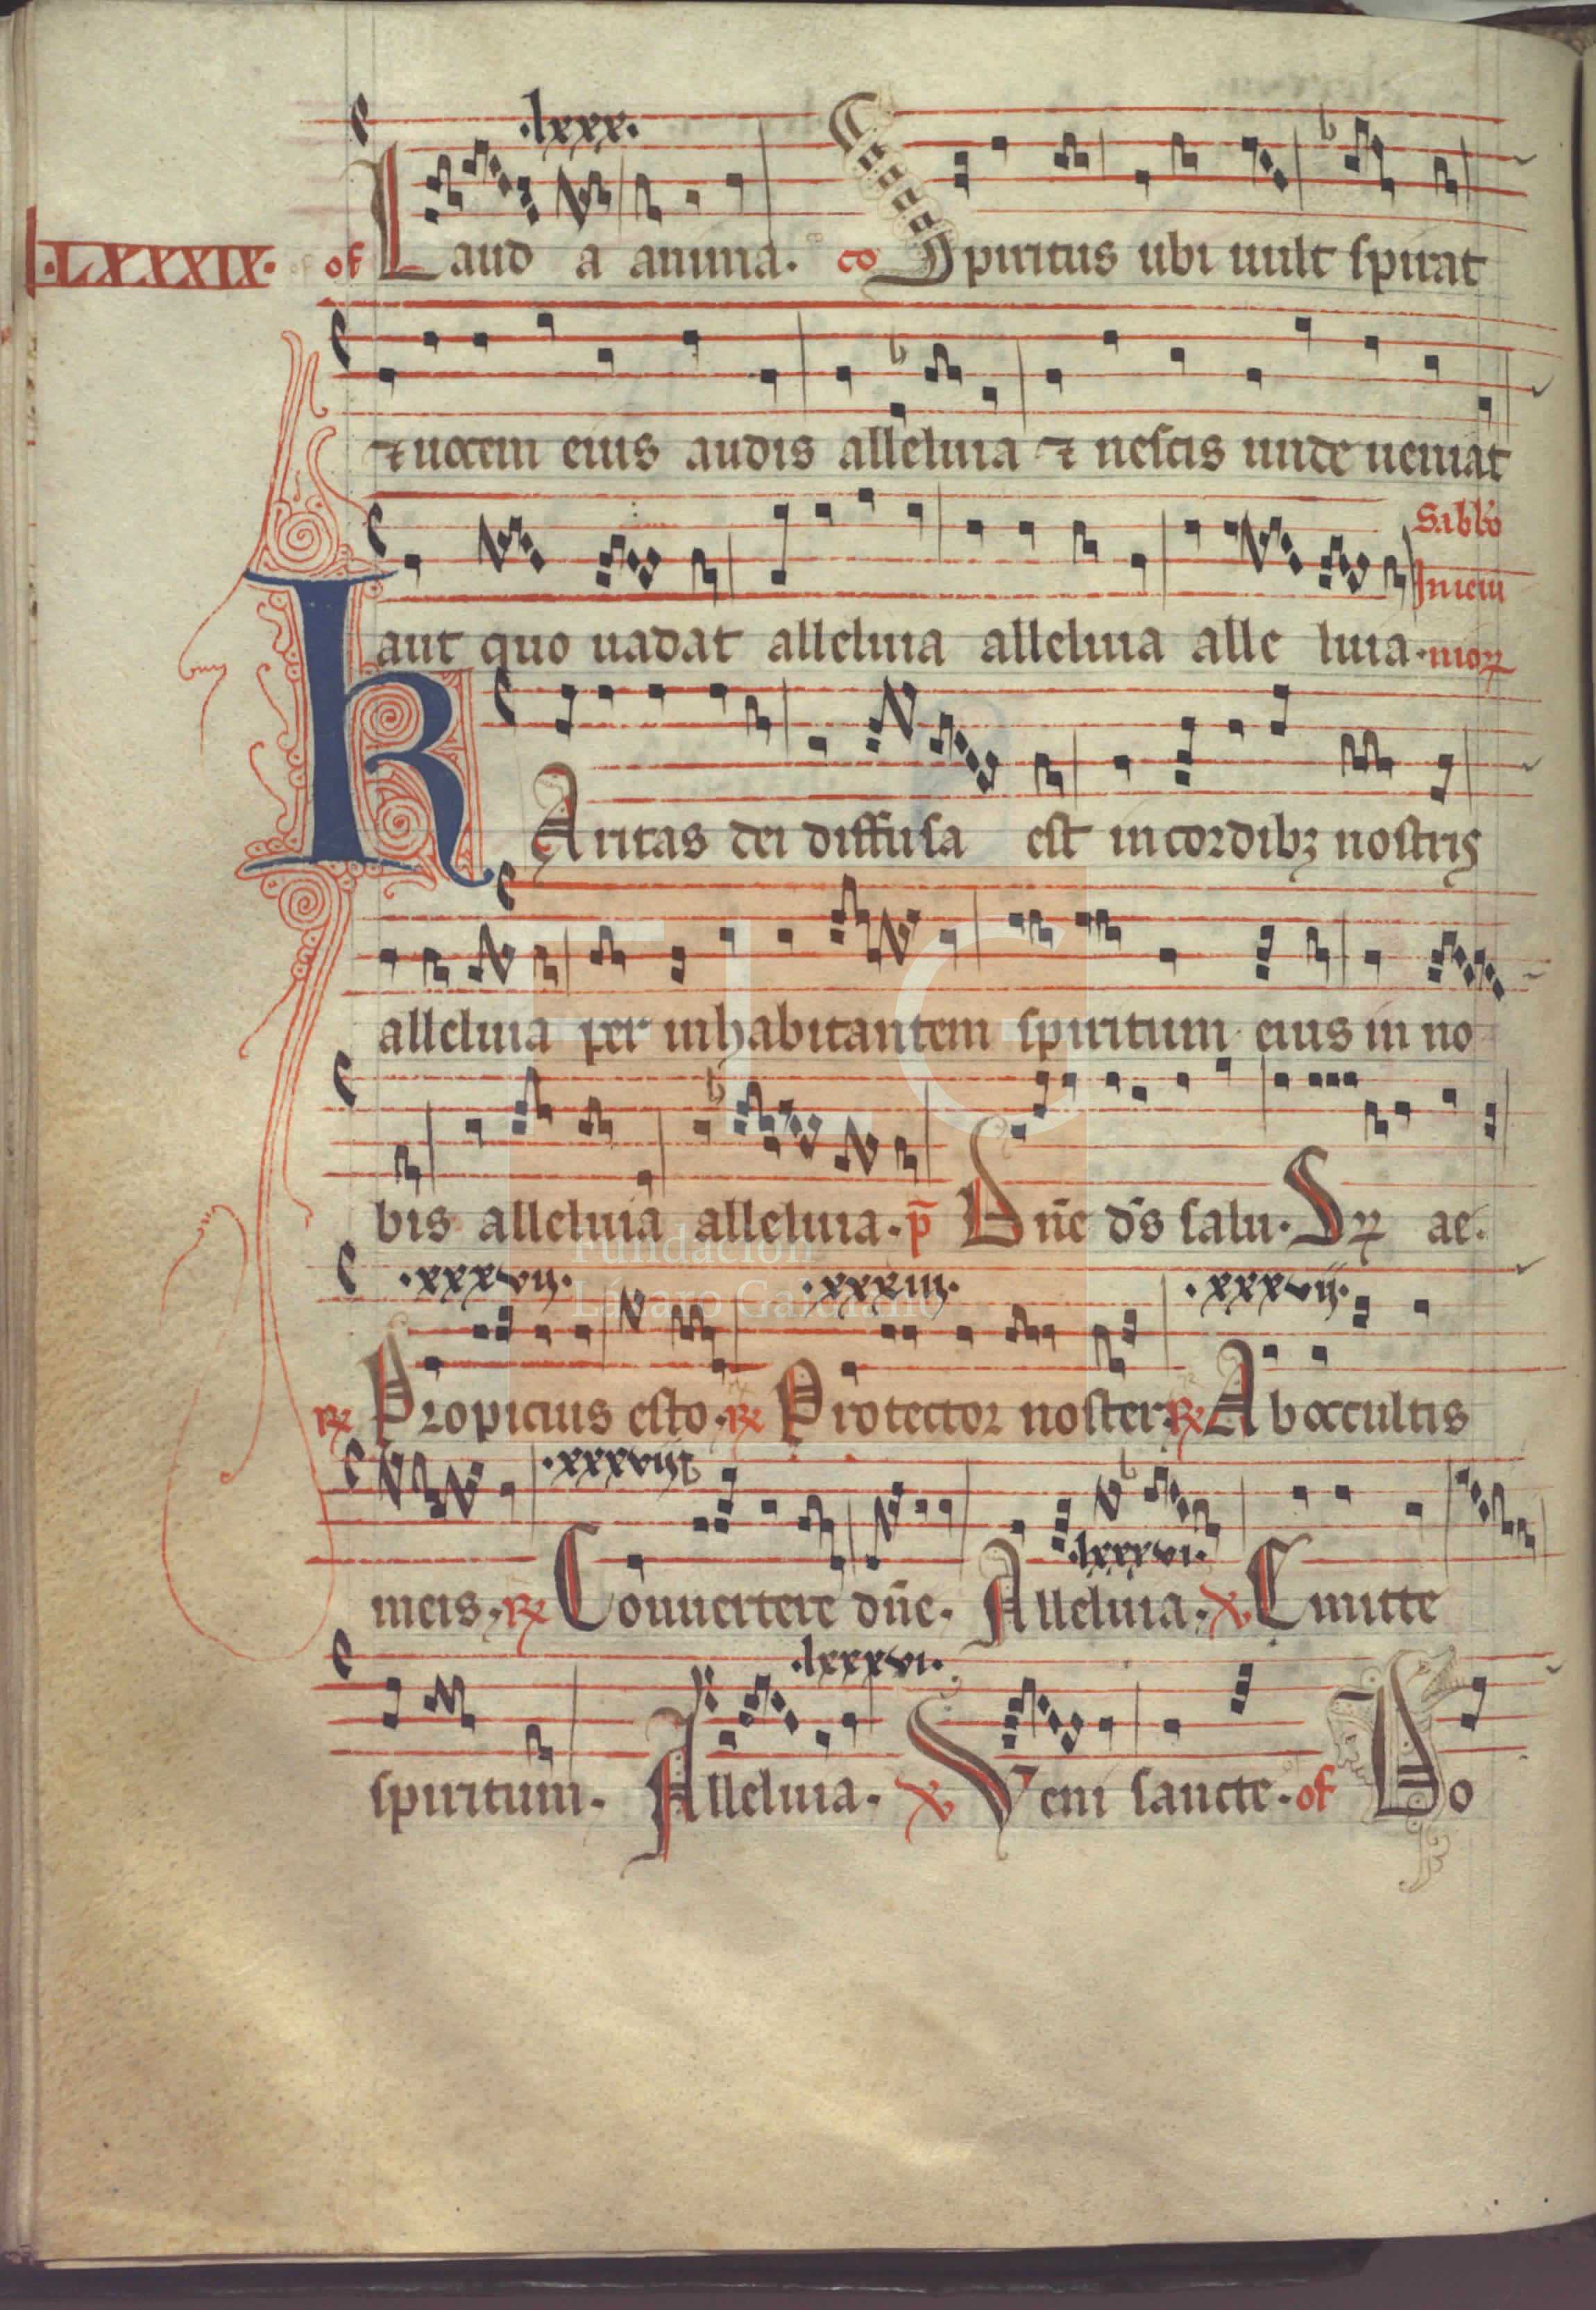 ·lxxx·
·LXXXIX· of Laud a anima· co Spiritus ubi uult spirat
⁊ uocem eius audis alleluia ⁊ nescis unde ueniat
Sabbo
In ieiu
aut quo uadat alleluia alleluia alle luia· nioꝝ
KAritas dei diffusa est in cordibꝫ nostris
alleluia per inhabitantem spiritum eius in no
bis alleluia alleluia· p̄ Dn̄e ds̄ salu· Sꝝ ae·
·xxxvii· ·xxxiii· ·xxxvii·
℞ Propicius esto· ℞ Protector noster· ℞ Ab occultis
·xxxxviii·
·lxxxvi·
meis· ℞ Conuertere dn̄e· Alleluia· ℣ Emitte
·lxxxvi·
spiritum· Alleluia· ℣ Veni sancte· of Do
FLG
Fundación
Lázaro Galdiano